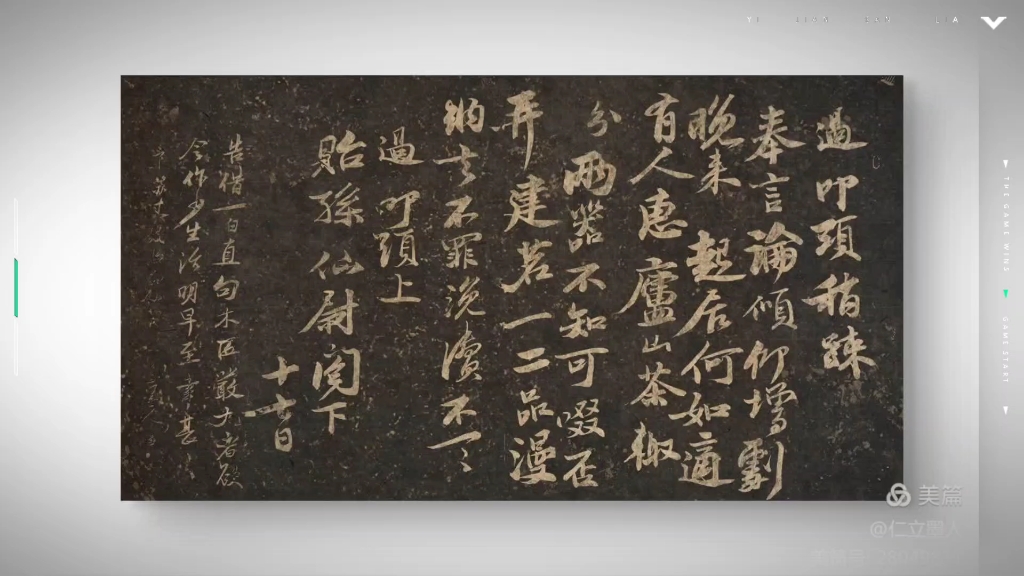 過叩頭稍踈
奉言論傾仰增劇
晚来起居何如適
有人惠廬山茶輙
分兩器不知可啜否
并建茗一二品漫
納去不罪浼瀆不一一
過叩頭上
貽孫仙尉閤下
告借一白直勾木匠嚴才者欲
今作少生活明早至幸甚
THE GAME WINS
GAME START
美篇